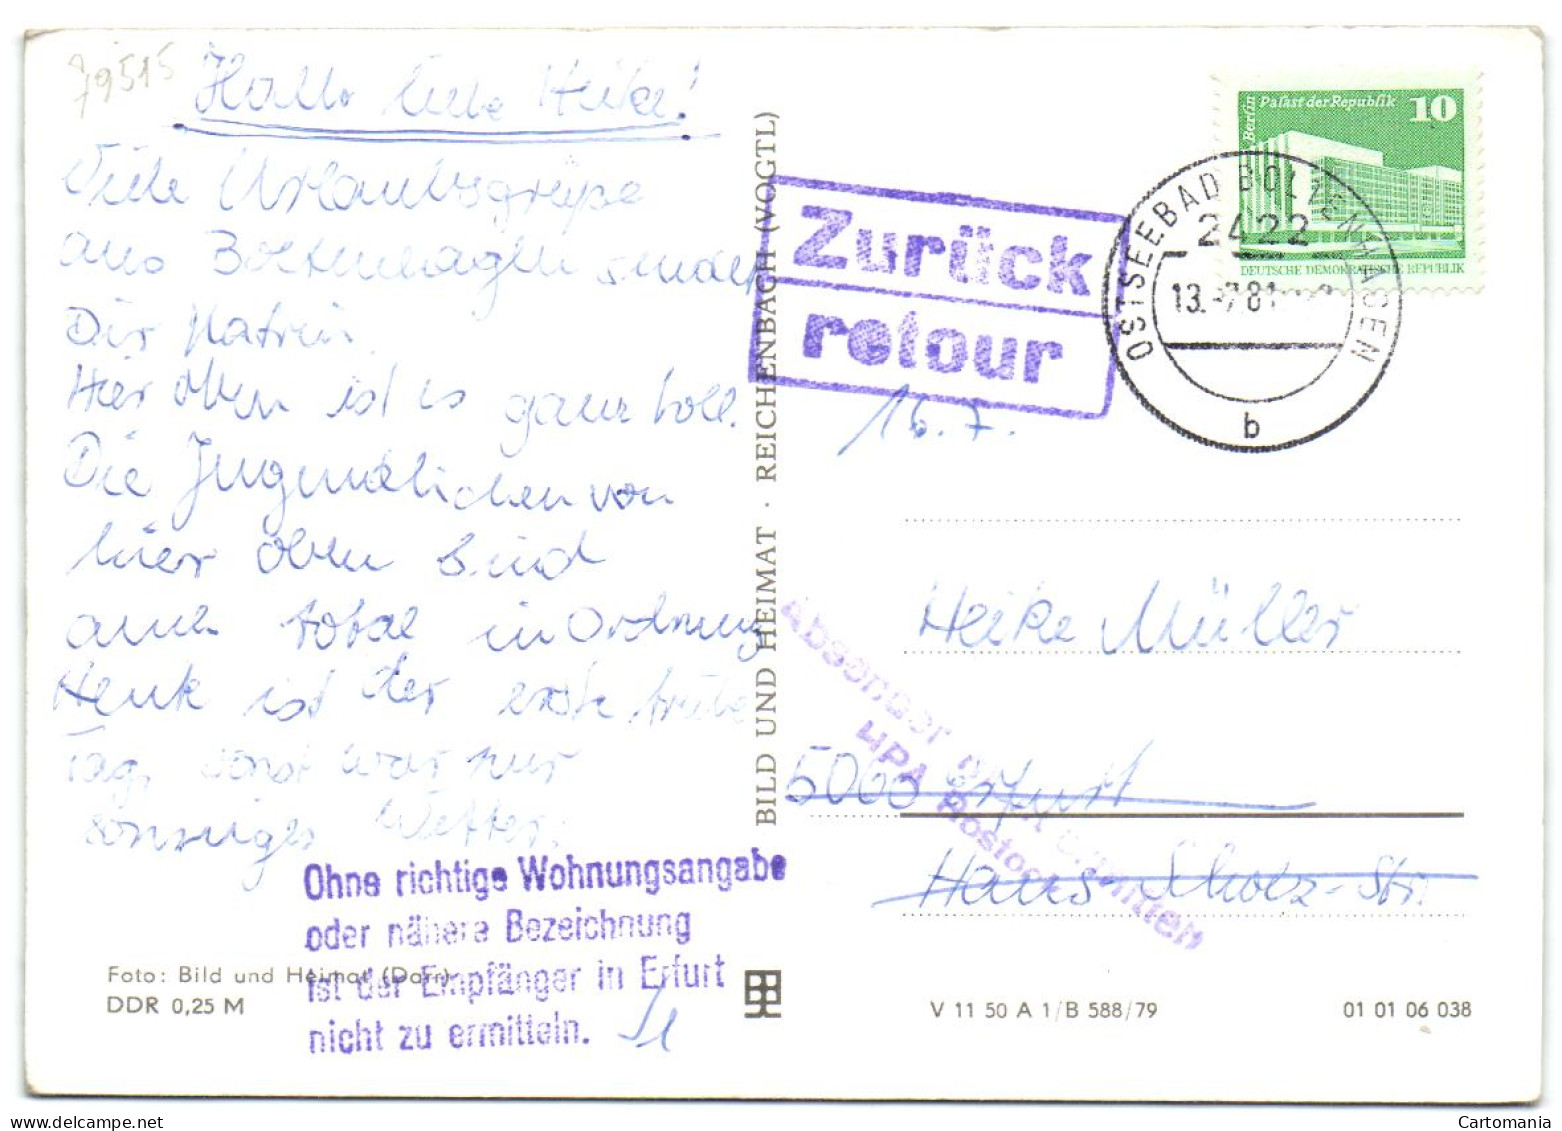 79515
Hallo liebe Heike!
Viele Urlaubsgrüße
aus Boltenhagen sendet
Dir Katrin.
Hier oben ist es ganz toll.
Die Jugendlichen von
hier oben sind
auch total in Ordnung
Heute ist der erste trübe
Tag, sonst war nur
sonniges Wetter.
Ohne richtige Wohnungsangabe
oder nähere Bezeichnung
ist der Empfänger in Erfurt
nicht zu ermitteln.
Foto: Bild und Heimat (Darr)
DDR 0,25 M
BILD UND HEIMAT · REICHENBACH (VOGTL)
Zurück
retour
16.7.
Berlin Palast der Republik 10
DEUTSCHE DEMOKRATISCHE REPUBLIK
OSTSEEBAD BOLTENHAGEN
2422
13.-7.81
b
Heike Müller
5060 Erfurt
Hans-Scholz-Str.
Absender
HPA Rostock
V 11 50 A 1/B 588/79
01 01 06 038
Cartomania